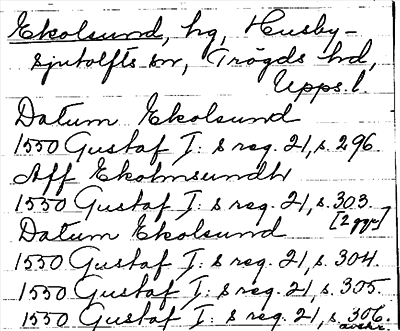 Ekolsund, hg, Husby-
Sjutolfts sn, Trögds hd,
Upps. l.
Datum Ekolsund
1550 Gustaf I: s reg. 21, s. 296.
Aff Ekolmsundh
1550 Gustaf I: s reg. 21, s. 303.
[2 ggr]
Datum Ekolsund
1550 Gustaf I: s reg. 21, s. 304.
1550 Gustaf I: s reg. 21, s. 305.
1550 Gustaf I: s reg. 21, s. 306.
avskr.